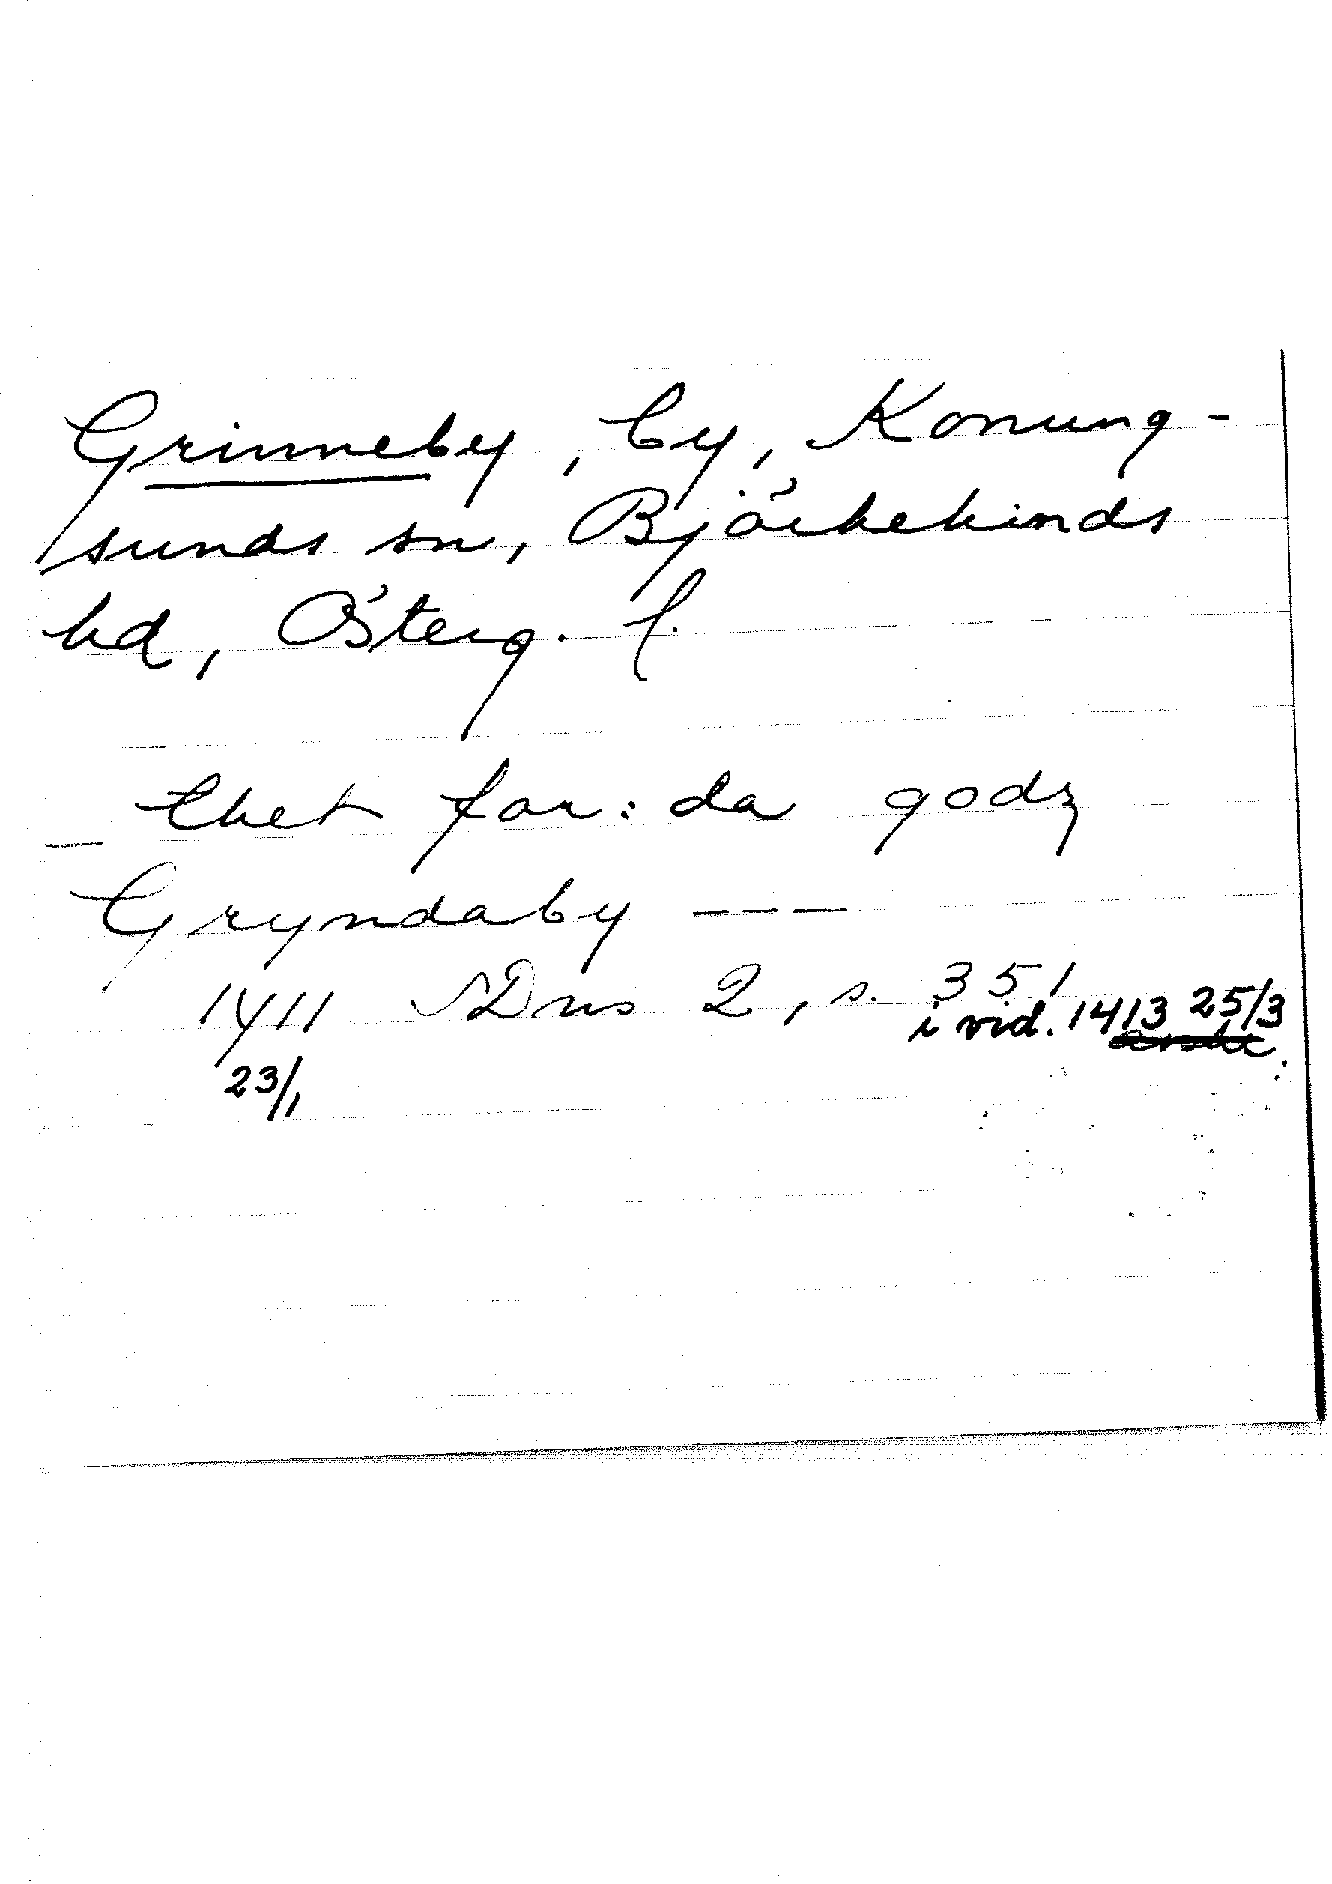 Grinneby, by, Konung-
sunds sn, Björkekinds
hd, Österg. l.
thet for:da godz
Gryndaby ---
1411 SDns 2, s. 351
i vid. 1413 25/3
23/1